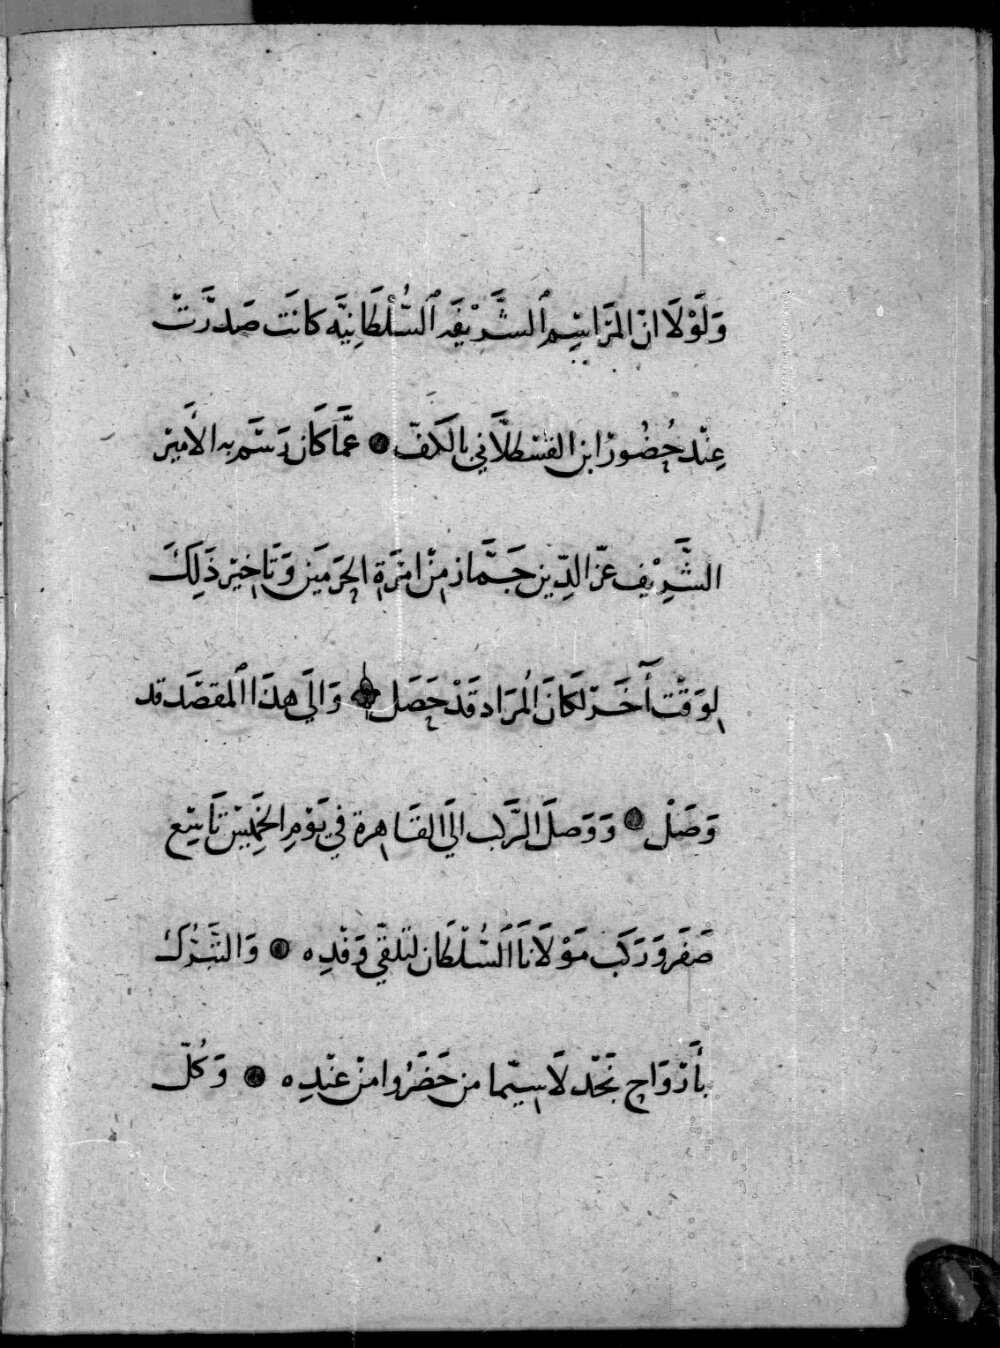 وَلَوْلَا انّ المَرَاسِم ٱلشَّرِيْفَه ٱلسُّلْطَانِيَّه كانَت صَدَرَتْ
عِنْد حُضُور ابن القسْطلَّانيّ بالكَفّ ● عَمَّا كَان رَسَم به الأَمِيْر
الشَّرِيْف عزّ الدِّين جَمَّاز مِنْ امْرَة الحَرَمَيَن وَتَاخِيْر ذَلِكَ
لوَقْت آخَر لَكَانَ المُرَاد قَدْ حَصَل ۞ وَالَي هذَا المقصَد قد
وَصَلْ ● وَوَصلَ الرَّكب الَي القَاهرة في يَوْمِ الخَمِيْس تَاسِع
صَفَر وَرَكَب مَوْلَانَا السُّلْطَان لتلقّي وَفْدِه ● وَالتَّبَرُّك
بأَرْوَاح نَجْد لَا سيَّما من حَضَرُوا منْ عنْدِه ● وَكُلّ